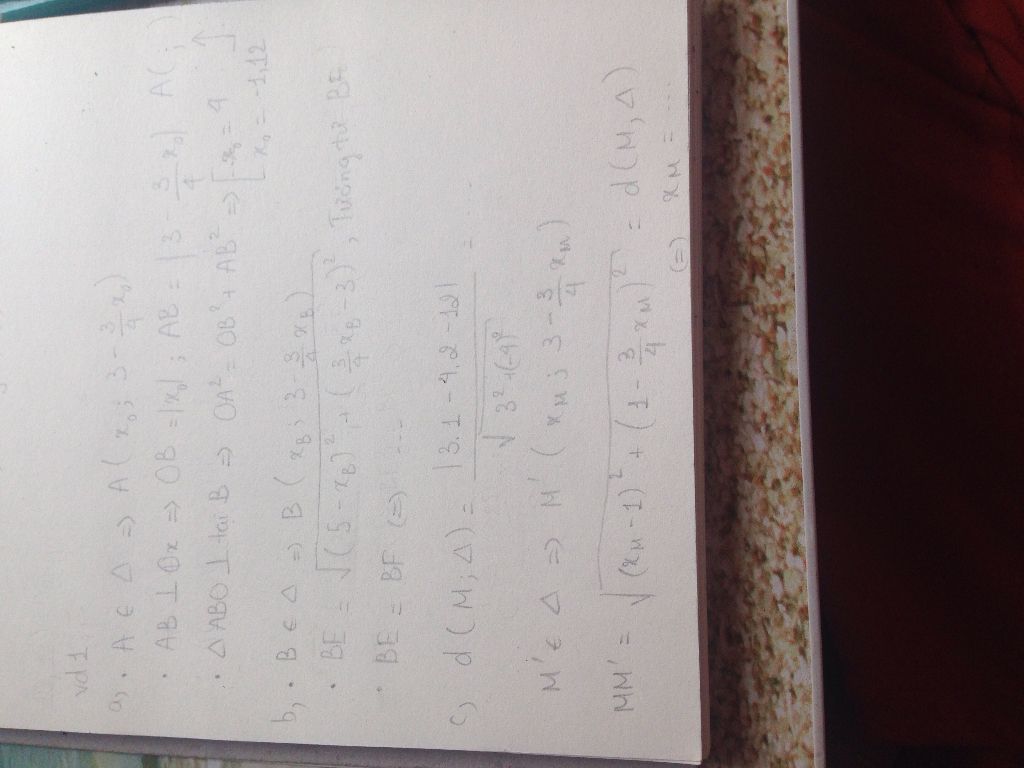 vd1
a, • A ∈ Δ ⇒ A ( x₀ ; 3 - 3/4 x₀)
• AB ⊥ Ox ⇒ OB = |x₀| ; AB = | 3 - 3/4 x₀| A( ; )
• Δ ABO ⊥ tại B ⇒ OA² = OB² + AB² ⇒ [ x₀ = 4
x₀ = -1,12
b, • B ∈ Δ ⇒ B ( x_B ; 3 - 3/4 x_B)
• BE = √((5 - x_B)² + ( 3/4 x_B - 3)²) , Tương tự BF
• BE = BF ⇔ ....
c, d ( M ; Δ) = |3.1 - 4.2 - 12| / √(3² + (-4)²) =
M' ∈ Δ ⇒ M' ( x_M ; 3 - 3/4 x_M)
MM' = √((x_M - 1)² + (1 - 3/4 x_M)²) = d ( M, Δ)
⇔ x_M = ....